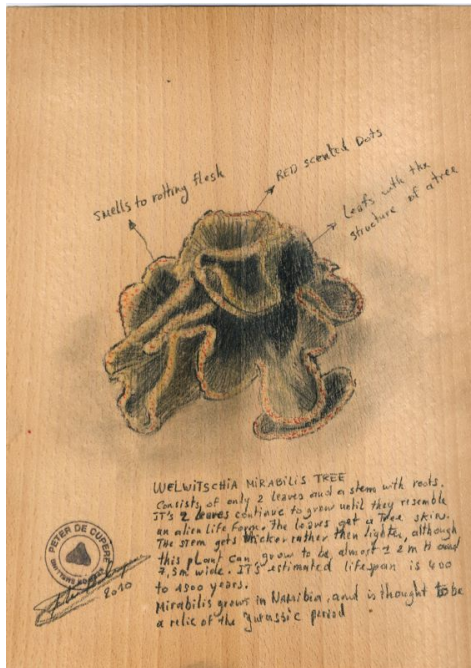 Smells to rotting flesh
RED scented Dots
Leafs with the
structure of a tree
WELWITSCHIA MIRABILIS TREE
Consists of only 2 leaves and a stem with roots.
IT'S 2 leaves continue to grow until they resemble
an alien life form. The leaves get a Tree skin.
The stem gets thicker rather then lighter, although
this plant can grow to be almost 1 2 m H and
7,5m wide. IT'S estimated lifespan is 400
to 1500 years.
Mirabilis grows in NAMIBIA, and is thought to be
a relic of the Jurassic period
PETER DE CUPERE
2010